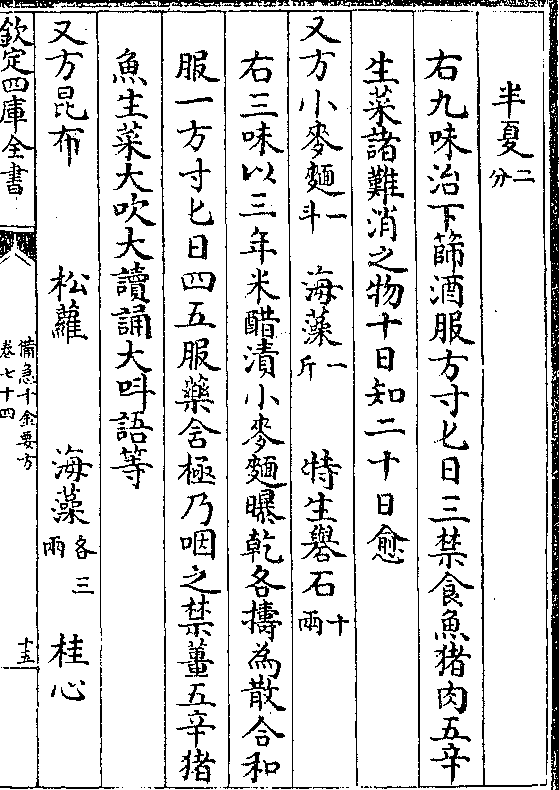 半夏二分
右九味治下篩酒服方寸匕日三禁食魚猪肉五辛
生菜諸難消之物十日知二十日愈
又方小麥麵一斗 海藻一斤 特生礜石十兩
右三味以三年米醋漬小麥麵曝乾各擣為散合和
服一方寸匕日四五服藥含極乃咽之禁薑五辛猪
魚生菜大吹大讀誦大呌語等
又方昆布 松蘿 海藻各三兩 桂心
欽定四庫全書
備急千金要方
卷七十四
十五